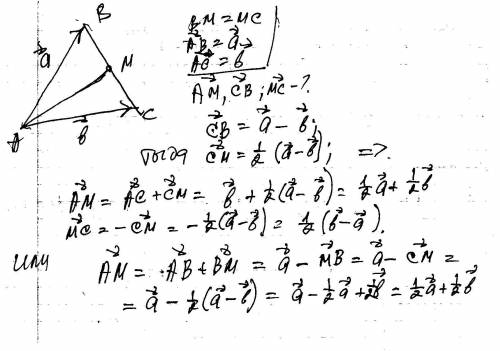 B
M
a⃗
C
b⃗
A
BM = MC
A⃗B = a⃗
A⃗C = b⃗
A⃗M, C⃗B; M⃗C - ?.
C⃗B = a⃗ - b⃗;
тогда C⃗M = 1/2 (a⃗-b⃗); =>.
A⃗M = A⃗C + C⃗M = b⃗ + 1/2(a⃗ - b⃗) = 1/2a⃗ + 1/2b⃗
M⃗C = - C⃗M = - 1/2(a⃗-b⃗) = 1/2(b⃗-a⃗).
или A⃗M = A⃗B + B⃗M = a⃗ - M⃗B = a⃗ - C⃗M =
= a⃗ - 1/2(a⃗-b⃗) = a⃗ - 1/2a⃗ + 1/2b⃗ = 1/2a⃗ + 1/2b⃗